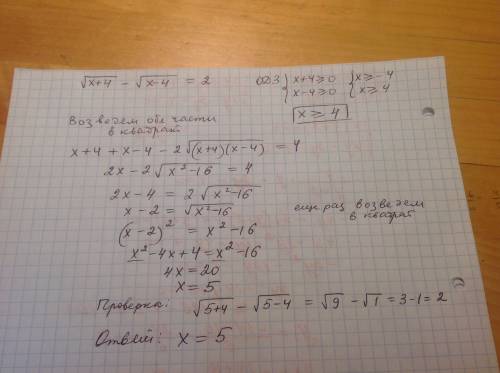 √(x+4) - √(x-4) = 2 ОДЗ { x+4≥0 { x≥-4
x-4≥0 x≥4
x ≥ 4
Возведем обе части
в квадрат
x+4 + x-4 - 2√((x+4)(x-4)) = 4
2x - 2√(x²-16) = 4
2x - 4 = 2√(x²-16)
x - 2 = √(x²-16) еще раз возведем
в квадрат
(x-2)² = x²-16
x² - 4x + 4 = x² - 16
4x = 20
x = 5
Проверка: √(5+4) - √(5-4) = √9 - √1 = 3-1 = 2
Ответ: x = 5